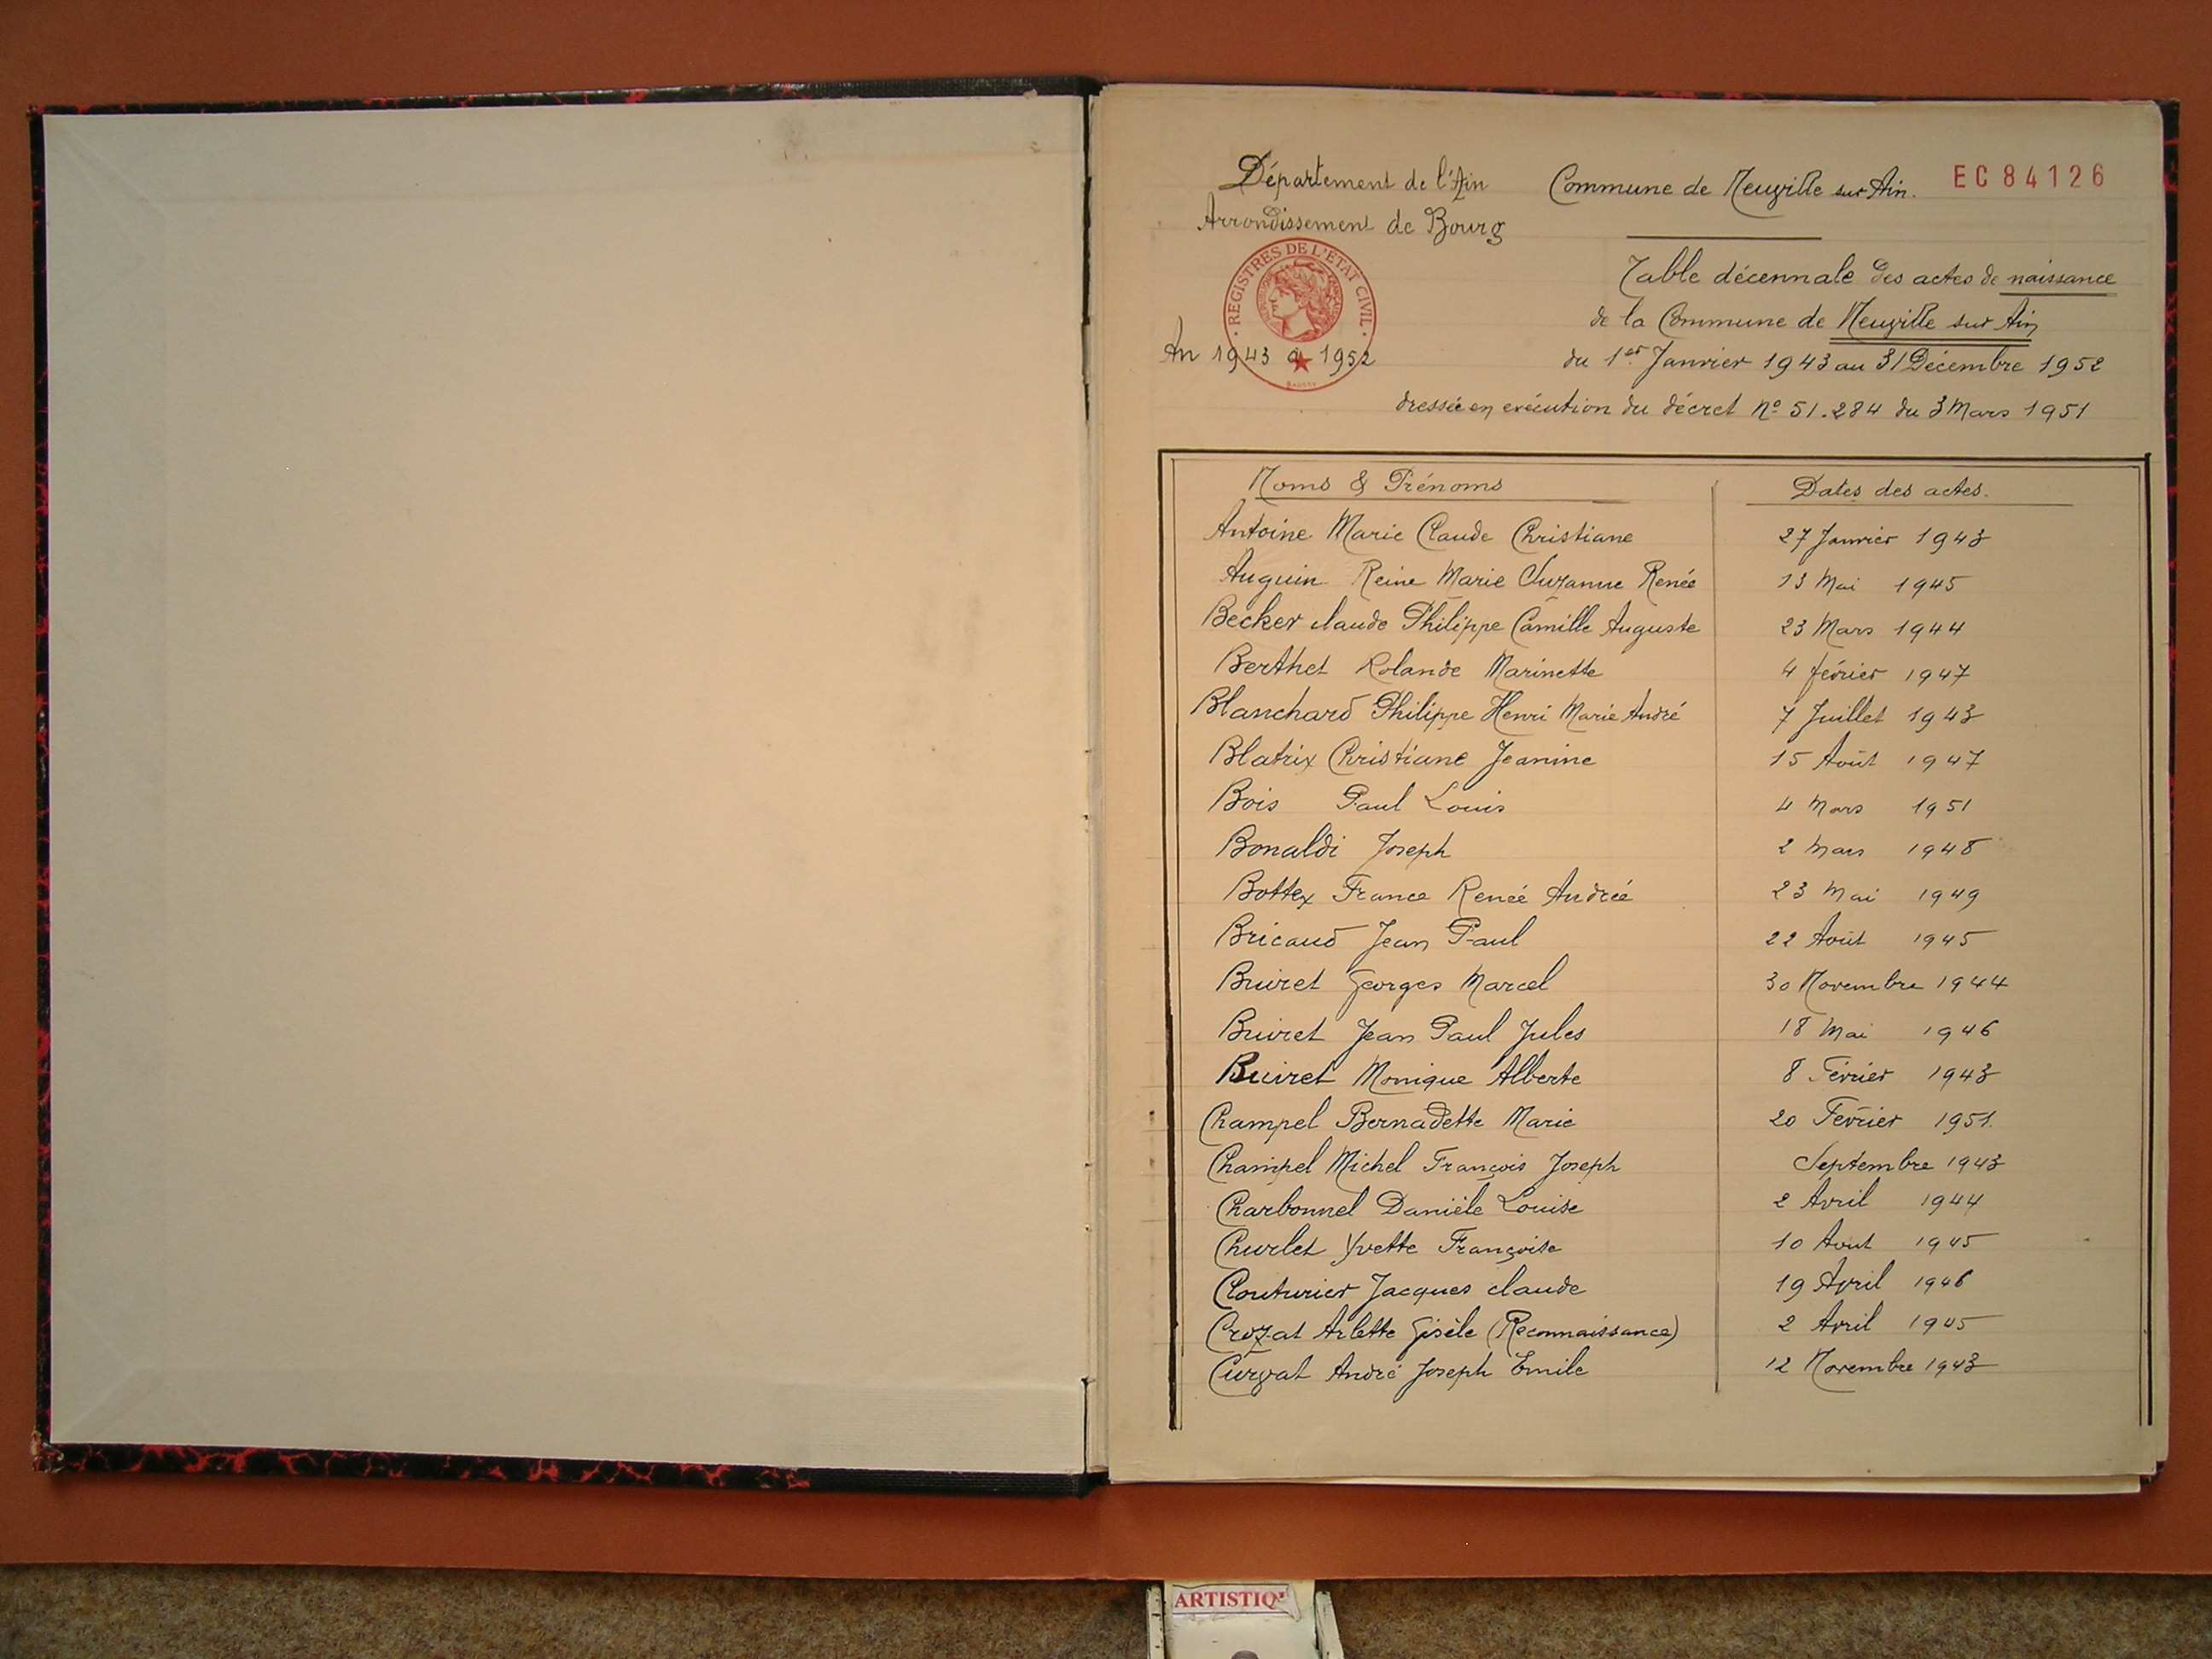 Département de l'Ain
Commune de Neuville sur Ain.
EC 84126
Arrondissement de Bourg
REGISTRES DE L'ETAT CIVIL
An 1943 à 1952
Table décennale des actes de naissance
de la Commune de Neuville sur Ain
du 1er Janvier 1943 au 31 Décembre 1952
dressée en exécution du décret No 51.284 du 3 Mars 1951
Noms & Prénoms Dates des actes.
Antoine Marie Claude Christiane 27 Janvier 1943
Auguin Reine Marie Suzanne Renée 13 Mai 1945
Becker Claude Philippe Camille Auguste 23 Mars 1944
Berthet Rolande Marinette 4 février 1947
Blanchard Philippe Henri Marie André 7 Juillet 1943
Blatrix Christiane Jeanine 15 Août 1947
Bois Paul Louis 4 Mars 1951
Bonaldi Joseph 2 Mars 1948
Bottex France Renée Andrée 23 Mai 1949
Bricaud Jean Paul 22 Août 1945
Buiret Georges Marcel 30 Novembre 1944
Buiret Jean Paul Jules 18 Mai 1946
Buiret Monique Alberte 8 Février 1943
Champel Bernadette Marie 20 Février 1951.
Champel Michel François Joseph Septembre 1943
Charbonnel Danièle Louise 2 Avril 1944
Churlet Yvette Françoise 10 Aout 1945
Couturier Jacques Claude 19 Avril 1946
Crozat Arlette Gisèle (Reconnaissance) 2 Avril 1945
Curvat André Joseph Emile 12 Novembre 1943
ARTISTIQ